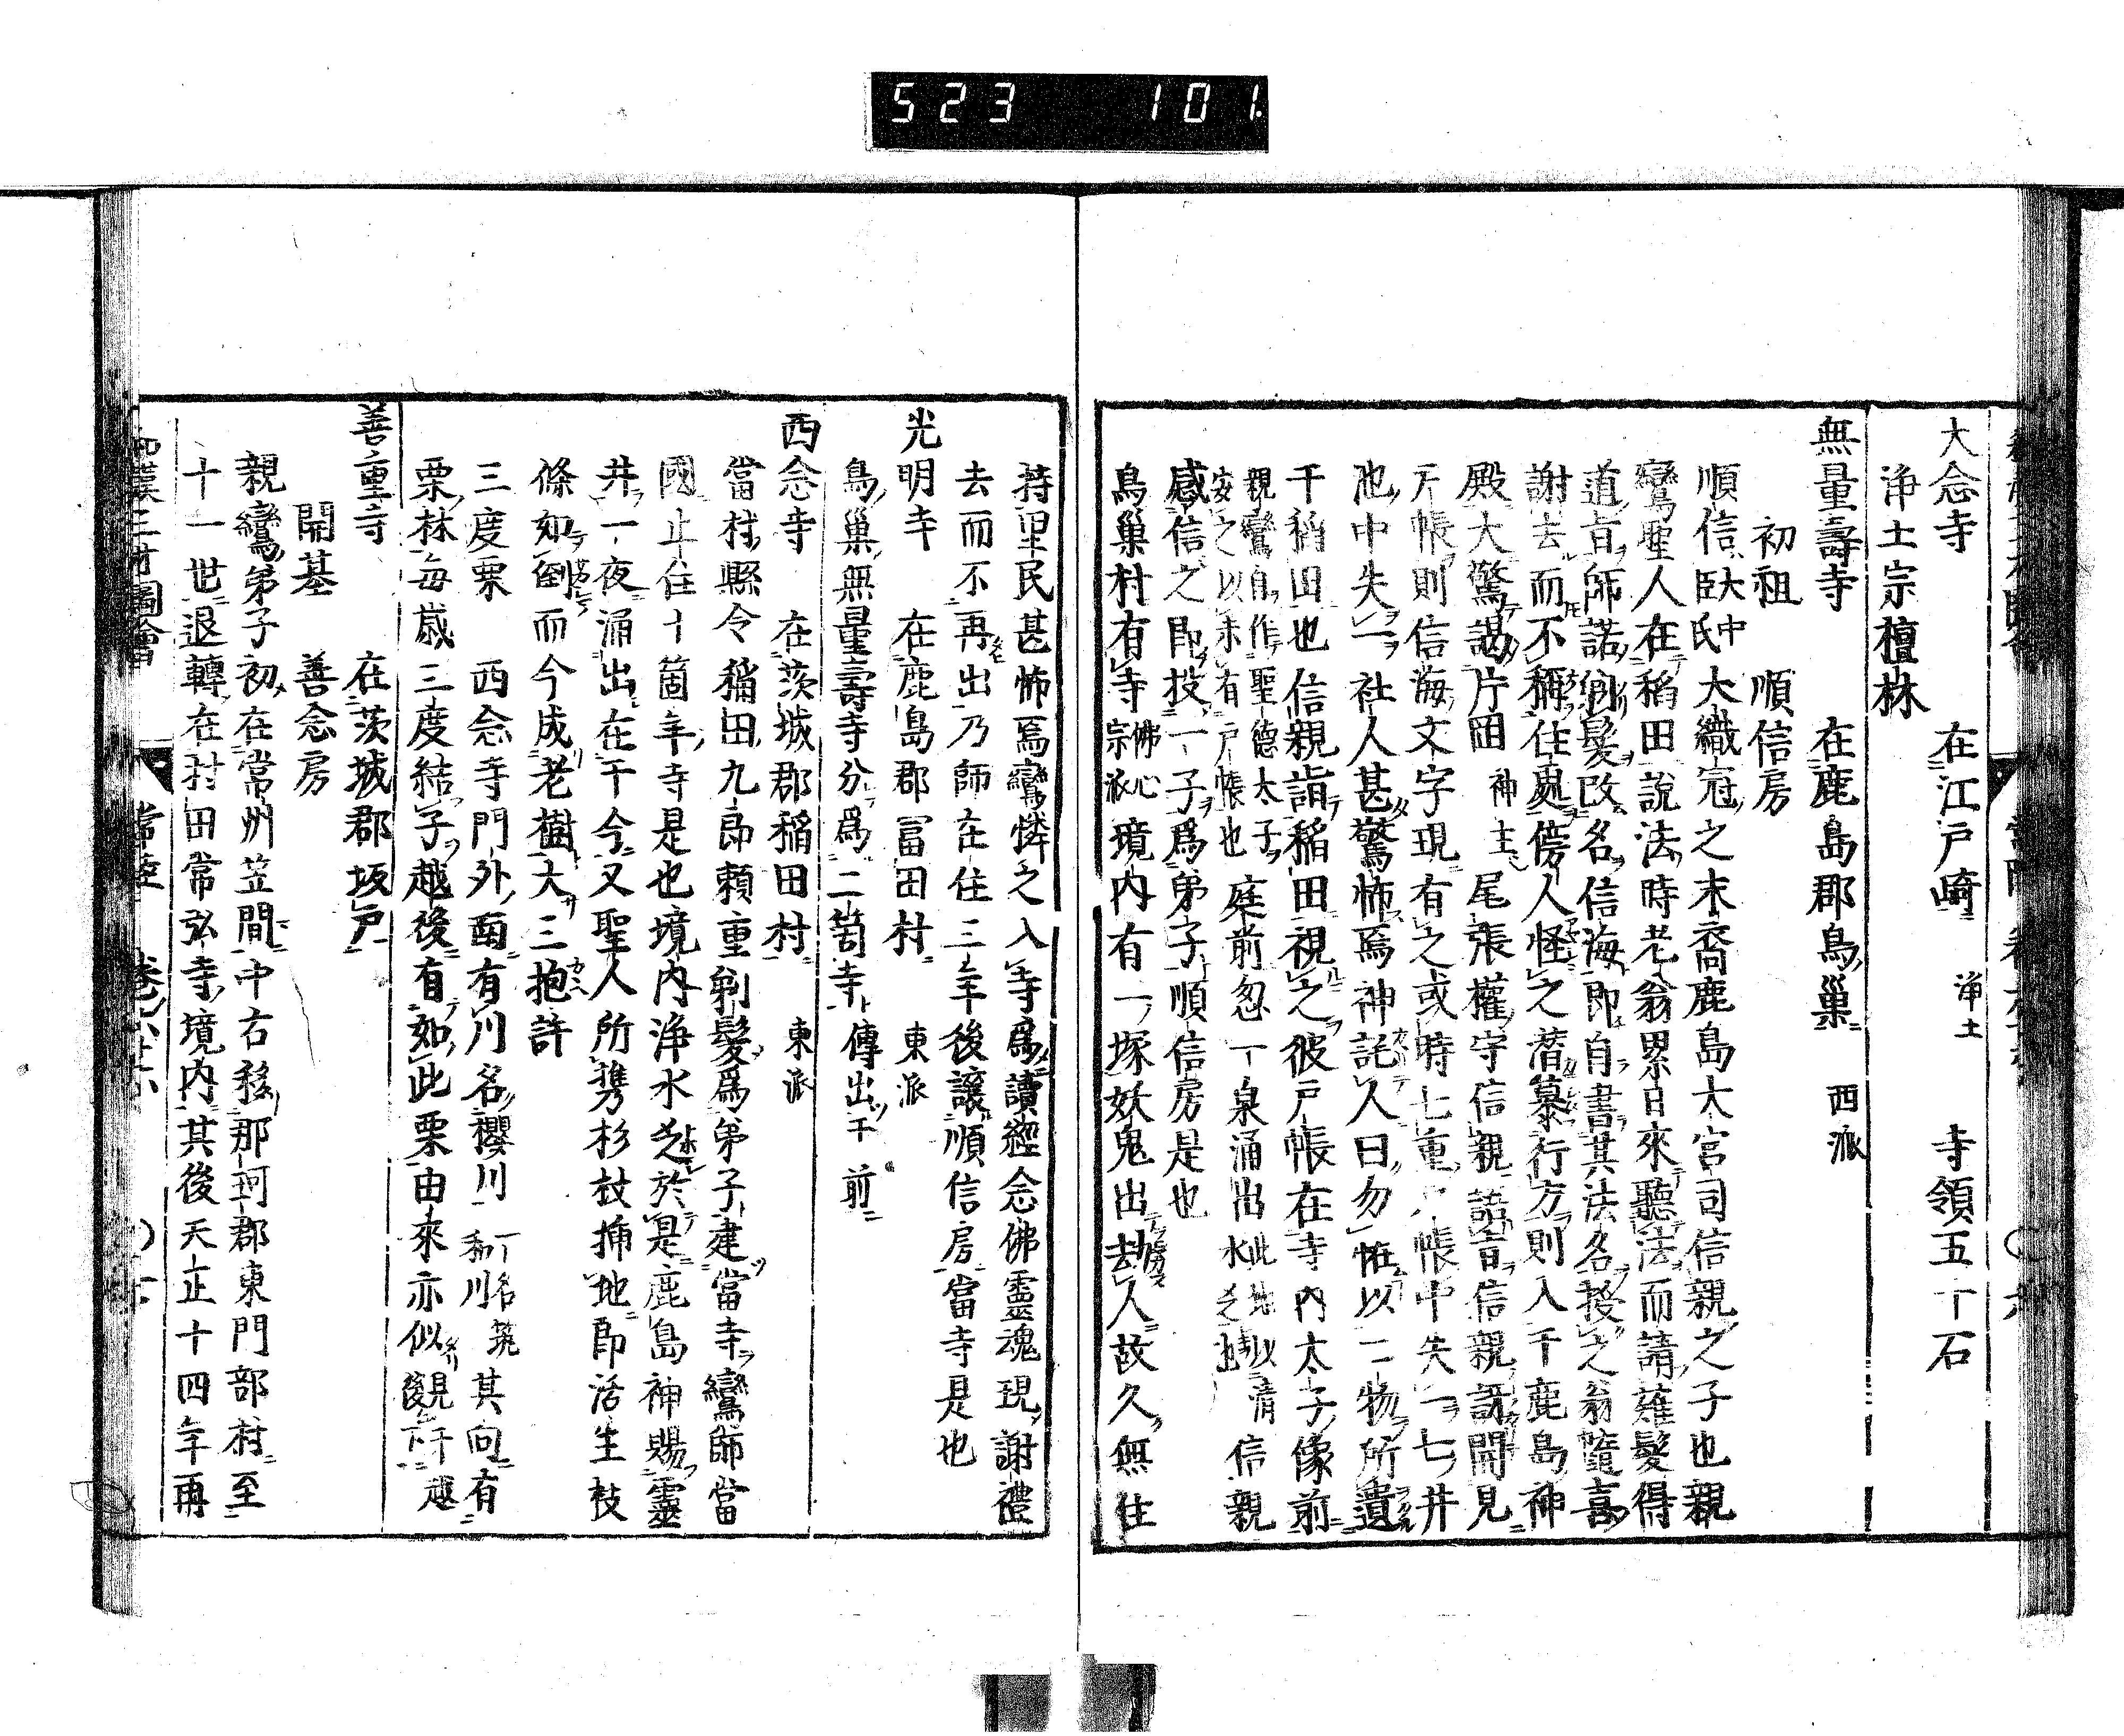 523 101.
大念寺 在江戸﨑 浄土 寺領五十石
浄土宗檀林
無量壽寺 在鹿島郡鳥巣 西派
初祖 順信房
順信大中臣氏大織冠之末裔鹿島大宮司信親之子也親
鸞聖人在稻田說法時老翁累日來聽法而請薙髮得
道旨師諾剃髮改名信海即自書其法名授之翁隨喜
謝去而不稱住處傍人怪之潜慕行方則入于鹿島神
殿大驚謁片岡神主尾張權守信親語旨信親訝開見
戸帳則信海文字現有之或時七重戸帳中失一七井
池中失一社人甚驚怖焉神託人曰勿恠以二物所遺
于稻田也信親詣稻田視之彼戸帳在寺內太子像前
親鸞自作聖德太子
安之以未有戸帳也
庭前忽一泉涌出
此地以清
水乏也
信親
感信之即投一子爲弟子順信房是也
鳥巢村有寺佛心宗派境內有一塚妖鬼出刧人故久無住
持里民甚怖焉鸞憐之入寺爲讀經念佛靈魂現謝禮
去而不再出乃師在住三年後讓順信房當寺是也
光明寺 在鹿島郡冨田村 東派
鳥巢無量壽寺分爲二箇寺傳出于前
西念寺 在茨城郡稻田村 東派
當村縣令稲田九郎頼重剃髮爲弟子建當寺鸞師當
國止住十箇年寺是也境內浄水乏於是鹿島神賜靈
井一夜涌出在于今又聖人所携杉杖挿地即活生枝
條如倒而今成老樹大三抱許
三度栗 西念寺門外南有川名櫻川一名筑和川其向有
栗林每歲三度結子越後有如此栗由來亦似觀于越後下
善重寺 在茨城郡坂戸
開基 善念房
親鸞弟子初在常州笠間中古移那珂郡東門部村至
十一世退轉在村田常弘寺境內其後天正十四年再
和漢三才圖會 常陸